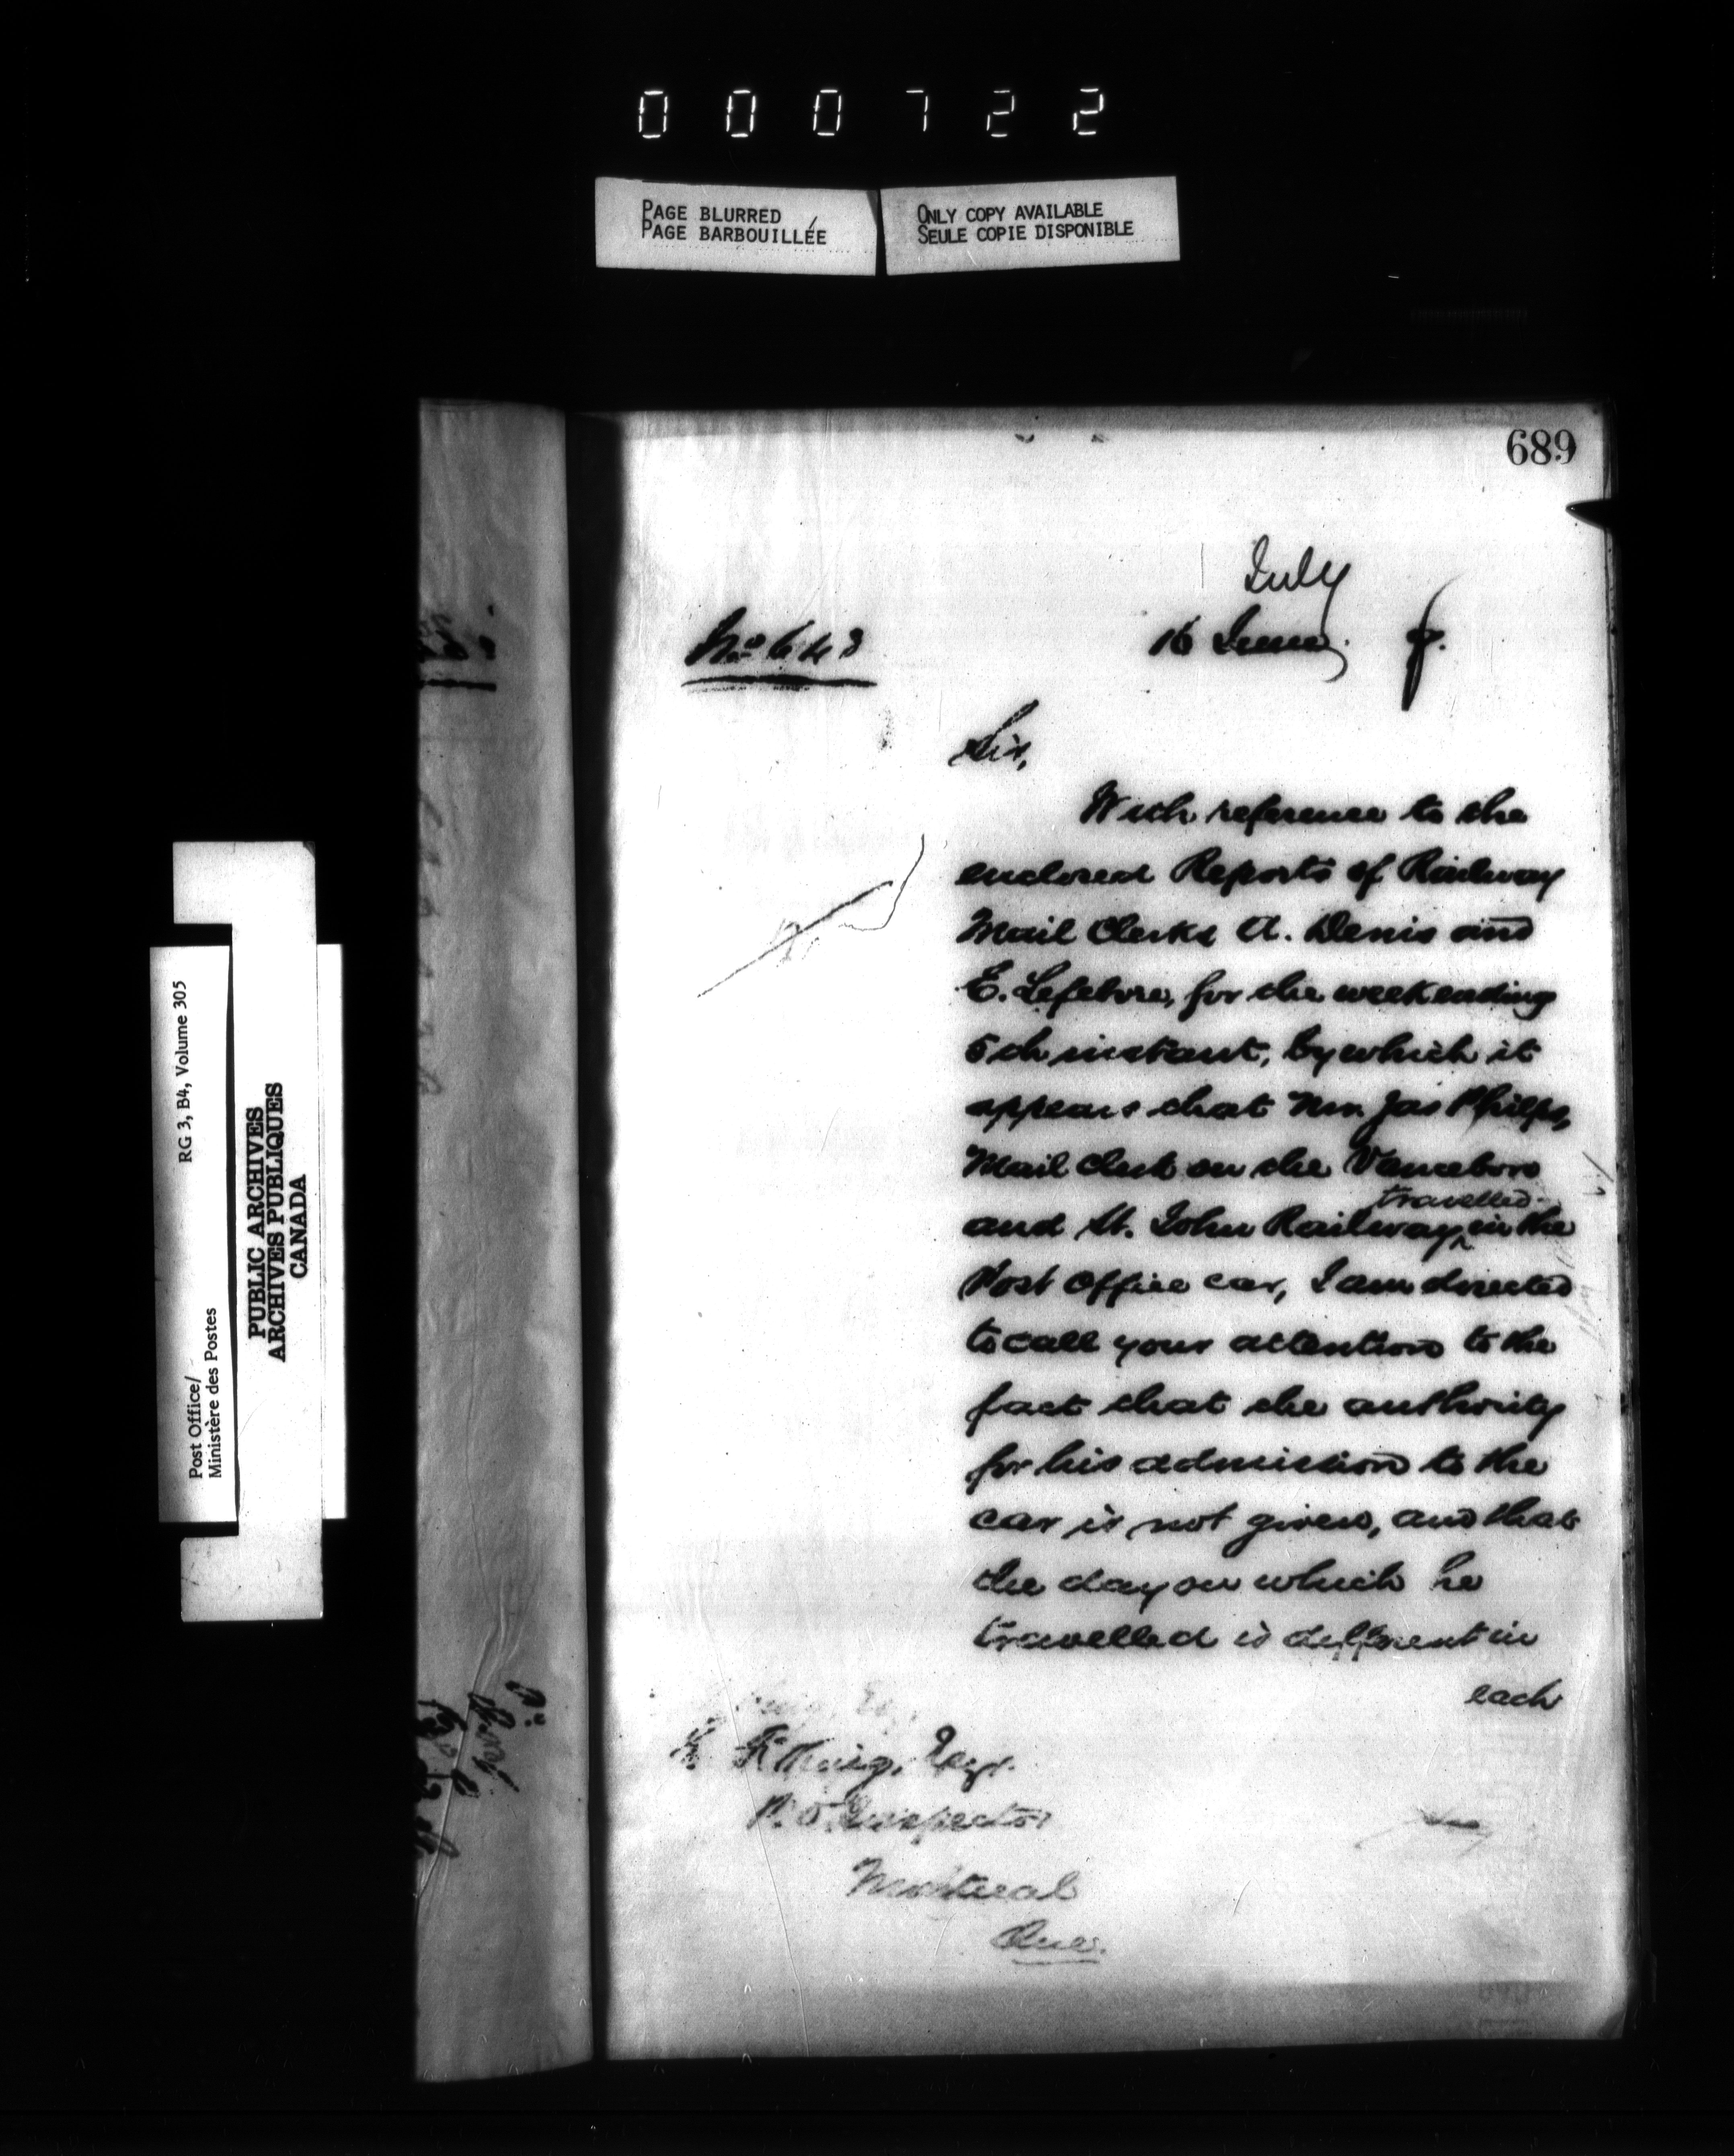 000722
PAGE BLURRED
PAGE BARBOUILLÉE
ONLY COPY AVAILABLE
SEULE COPIE DISPONIBLE
689
July
No 648
16 June
Sir,
With reference to the
enclosed Reports of Railway
Mail Clerks A. Denis and
E. Lefebvre, for the week ending
5th instant, by which it
appears that Mr. Jas Philps,
Mail Clerk on the Vanceboro
and St. John Railway, travelled in the
Post Office car, I am directed
to call your attention to the
fact that the authority
for his admission to the
car is not given, and that
the day on which he
travelled is different in
each
King, Esqr.
P.O. Inspector
Montreal
Que.
RG 3, B4, Volume 305
Post Office/
Ministère des Postes
PUBLIC ARCHIVES
ARCHIVES PUBLIQUES
CANADA